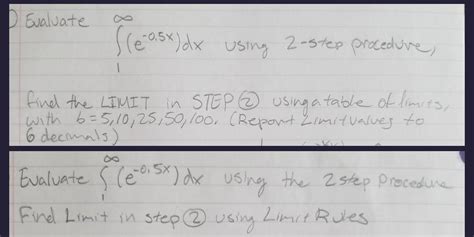 ) Evaluate ∞
∫(e^-0.5x)dx using 2-step procedure,
1
find the LIMIT in STEP ② using a table of limits,
with b=5,10,25,50,100. (Report Limit values to
6 decimals)
∞
Evaluate ∫ (e^-0.5x) dx using the 2 step Procedure
1
Find Limit in step ② using Limit Rules